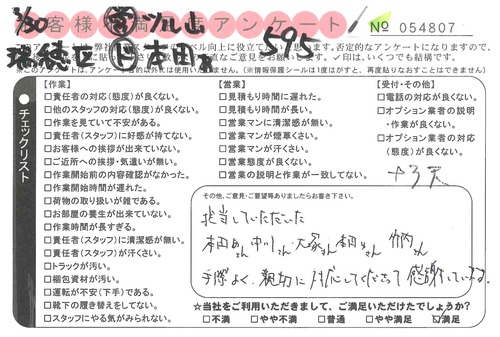 お客様満足度アンケート
No 054807
瑞穂区
595
※このアンケートは、目的以外には使用いたしません。(※情報保護シールは1度がすと、再度貼りなおすことができません。)
チェックリスト
【作業】
□責任者の対応(態度)が良くない。
□他のスタッフの対応(態度)が良くない。
□作業を見ていて不安がある。
□責任者(スタッフ)に好感が持てない。
□お客様への挨拶が出来ていない。
□ご近所への挨拶・気遣いが無い。
□作業開始前の内容確認がなかった。
□作業開始時間が遅れた。
□荷物の取り扱いが雑である。
□お部屋の養生が出来ていない。
□作業時間が長すぎる。
□責任者(スタッフ)に清潔感が無い。
□責任者(スタッフ)が汗くさい。
□トラックが汚い。
□梱包資材が汚い。
□運転が不安(下手)である。
□靴下の履き替えをしてない。
□スタッフにやる気がみられない。
【営業】
□見積もり時間に遅れた。
□見積もり時間が長い。
□営業マンに清潔感が無い。
□営業マンが煙草くさい。
□営業マンが汗くさい。
□営業態度が良くない。
□営業の説明と作業が一致してない。
【受付・その他】
□電話の対応が良くない。
□オプション業者の説明
・作業が良くない。
□オプション業者の対応
(態度)が良くない。
その他、ご意見・ご要望等ありましたらお書き下さい。
担当していただいた
本田さん中川さん大塚さん本田さん竹内さん
手際よく、親切に対応してくださって感謝しています。
☆当社をご利用いただきまして、ご満足いただけたでしょうか?
□不満 □やや不満 □普通 □やや満足 ☑満足